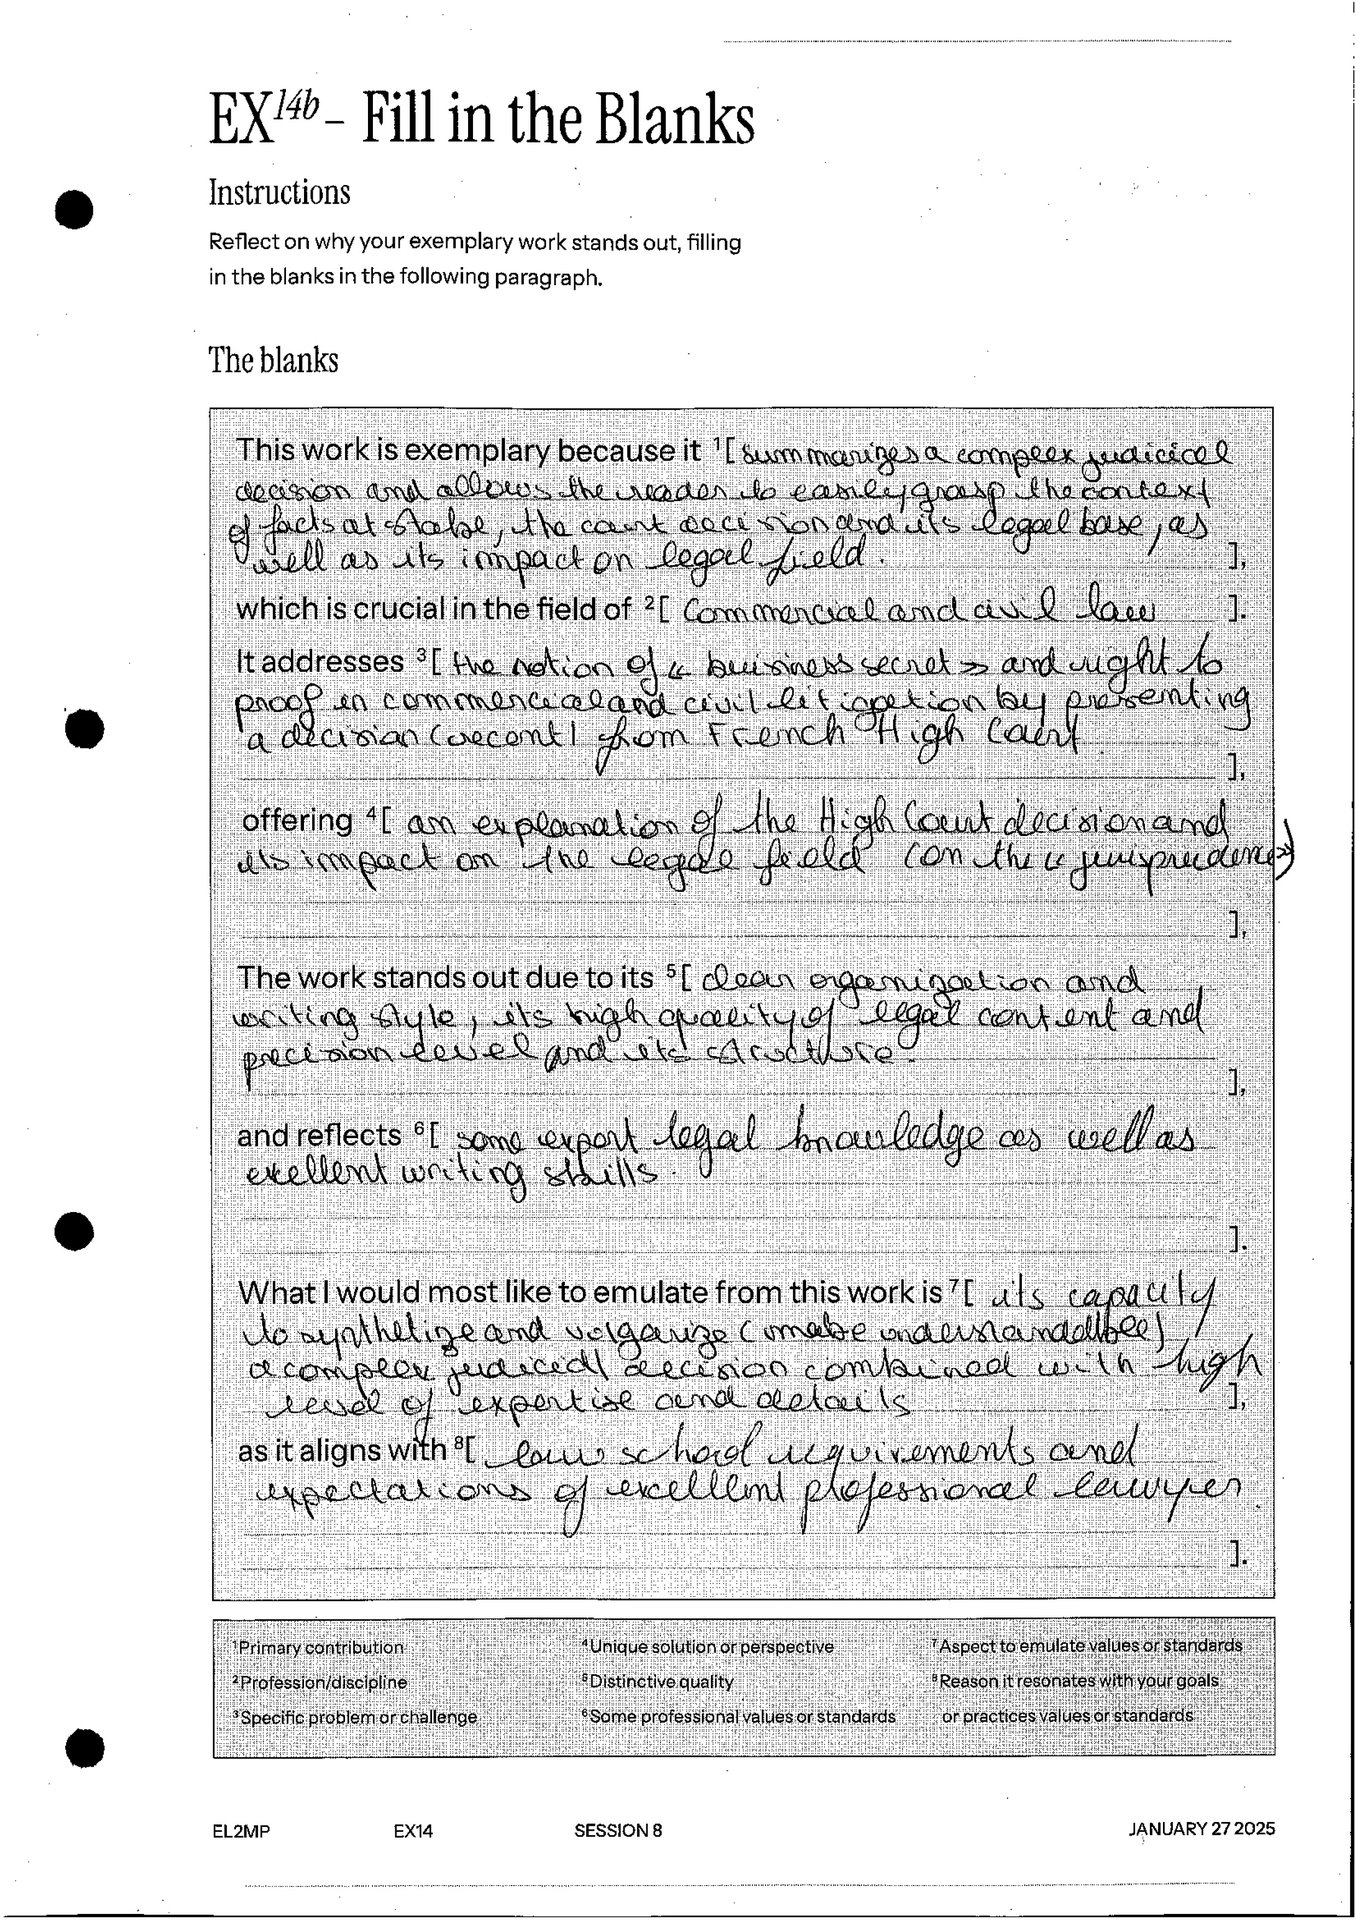 EX14b – Fill in the Blanks
Instructions
Reflect on why your exemplary work stands out, filling
in the blanks in the following paragraph.
The blanks
This work is exemplary because it ¹[ summarizes a complex judicical
decision and allows the reader to easily grasp the context
of facts at stake, the court decision and its legal base, as
well as its impact on legal field. ],
which is crucial in the field of ²[ Commercial and civil law ].
It addresses ³[ the notion of « business secret » and right to
proof in commercial and civil litigation by presenting
a decision (recent) from French High Court
],
offering ⁴[ an explanation of the High Court decision and
its impact on the legal field (on the « jurisprudence »)
],
The work stands out due to its ⁵[ clear organization and
writing style, its high quality of legal content and
precision level and its structure.
],
and reflects ⁶[ some expert legal knowledge as well as
exellent writing skills.
].
What I would most like to emulate from this work is ⁷[ its capacity
to synthetize and volgarize (make understandable)
a complex judicial decision combined with high
level of expertise and details ],
as it aligns with ⁸[ law school requirements and
expectations of excellent professional lawyer.
].
¹Primary contribution
²Profession/discipline
³Specific problem or challenge
⁴Unique solution or perspective
⁵Distinctive quality
⁶Some professional values or standards
⁷Aspect to emulate values or standards
⁸Reason it resonates with your goals
or practices values or standards
EL2MP EX14 SESSION 8 JANUARY 27 2025